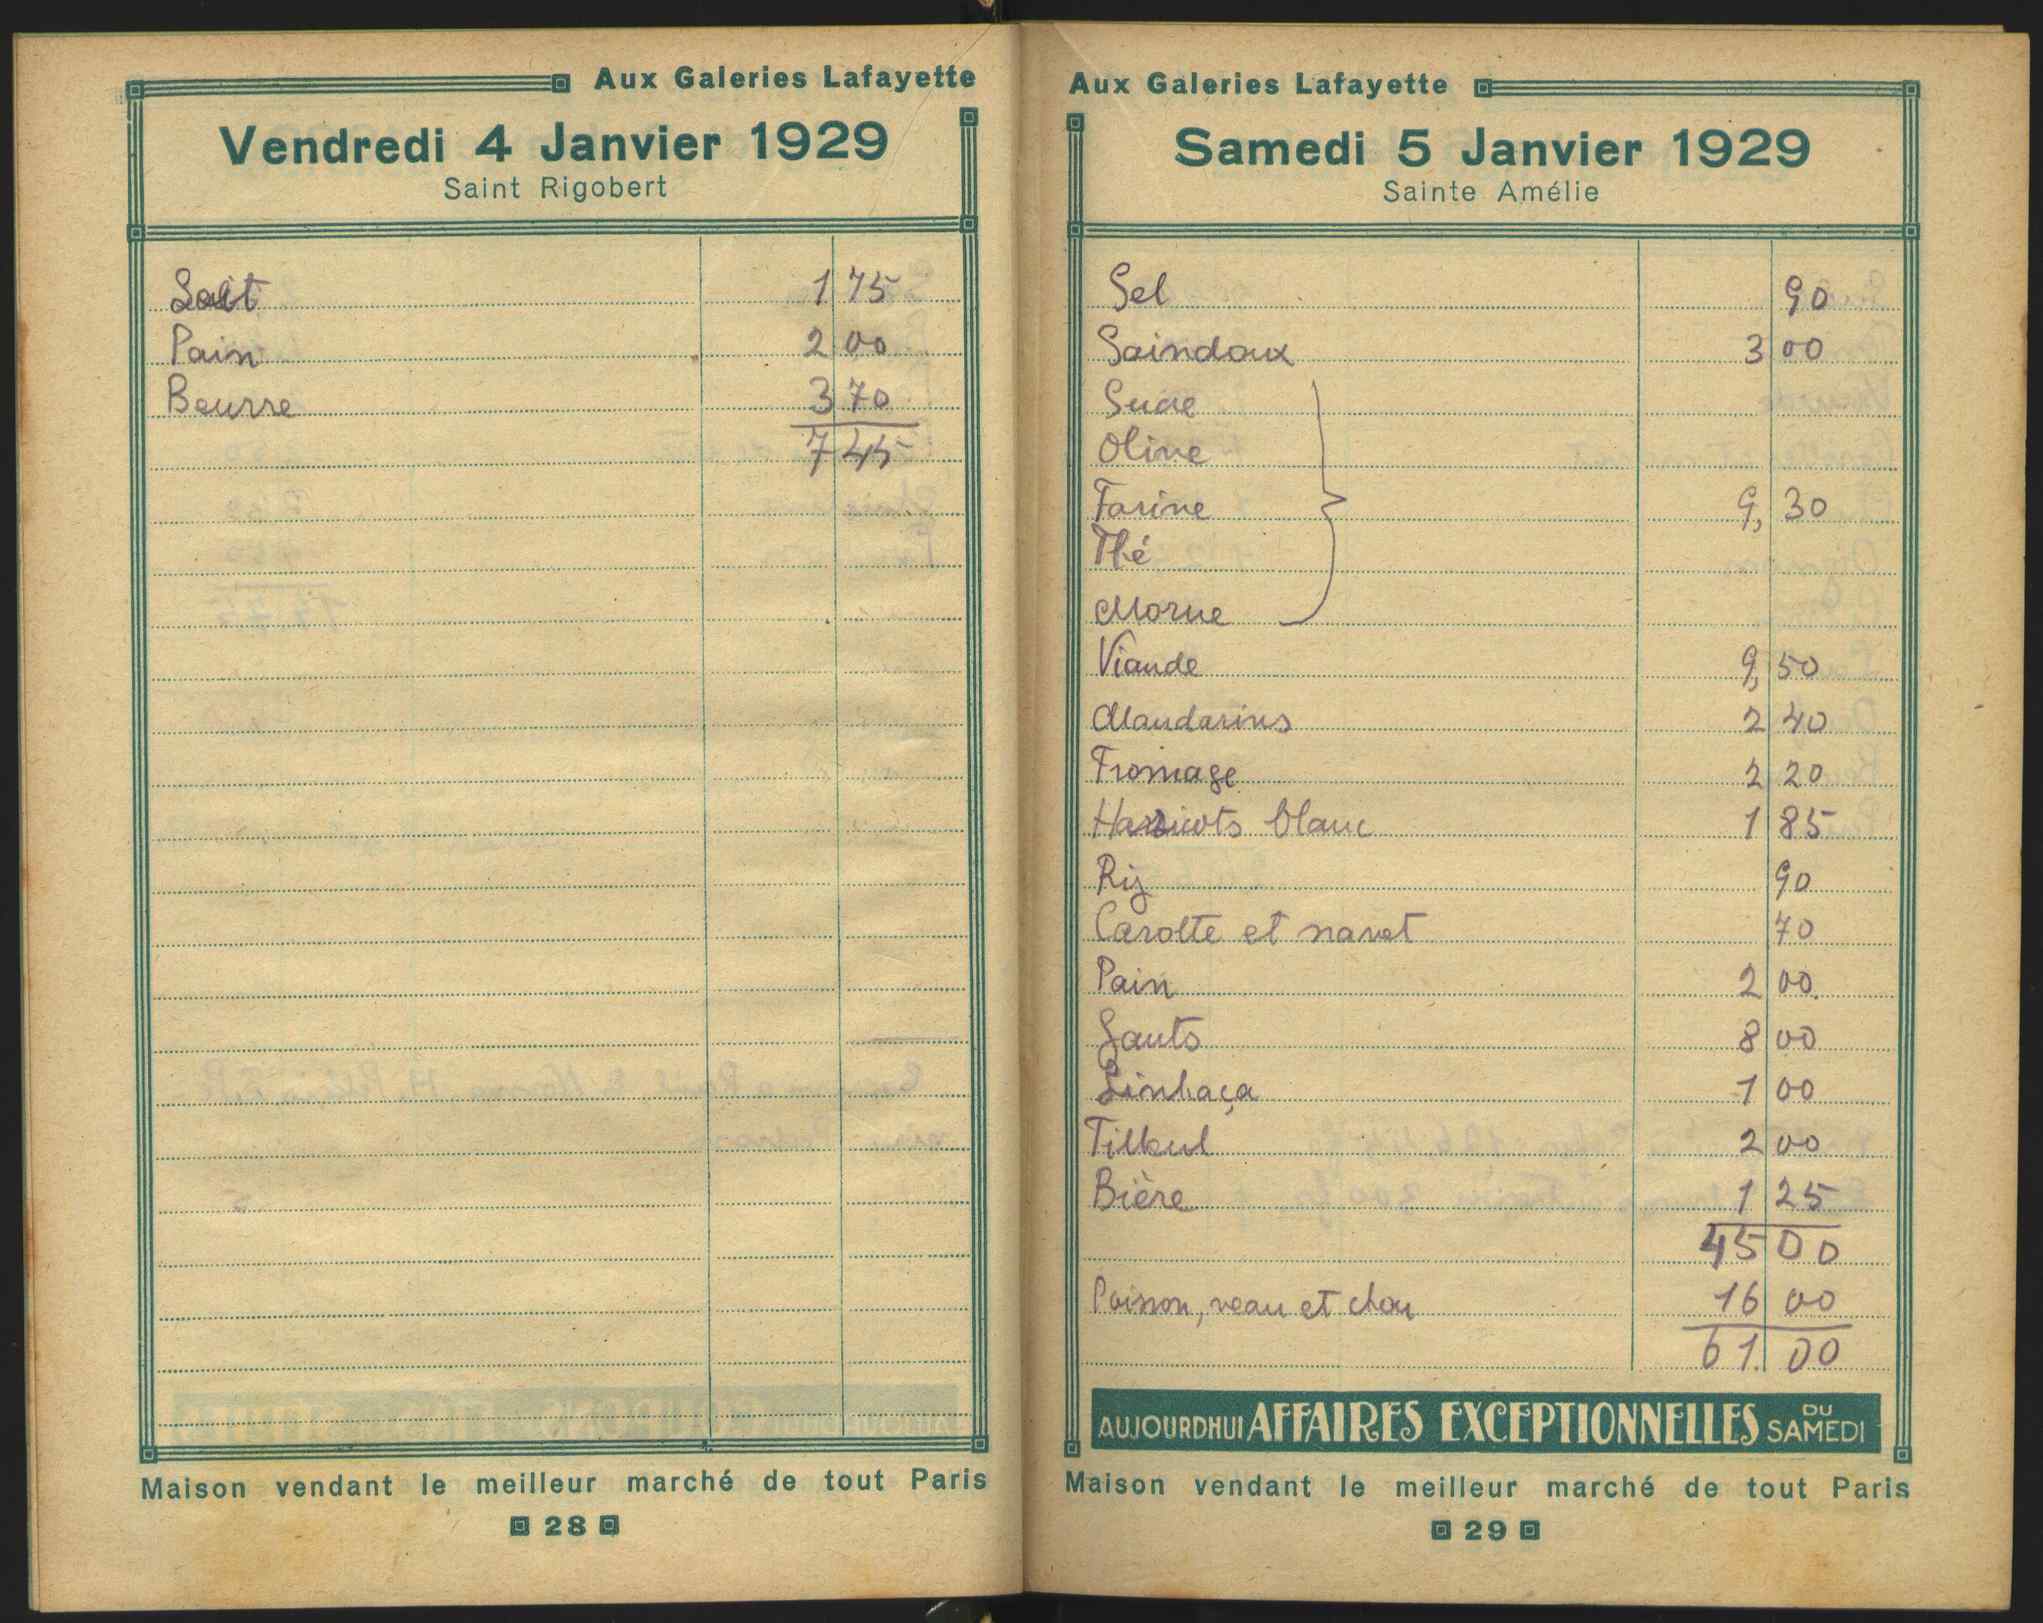 Aux Galeries Lafayette
Vendredi 4 Janvier 1929
Saint Rigobert
Lait 1 75
Pain 2 00
Beurre 3 70
7 45
Maison vendant le meilleur marché de tout Paris
28
Aux Galeries Lafayette
Samedi 5 Janvier 1929
Sainte Amélie
Sel 90
Saindoux 3 00
Sucre
Olive
Farine 9,30
Thé
Morue
Viande 9,50
Mandarins 2 40
Fromage 2 20
Harricots blanc 1 85
Riz 90
Carotte et navet 70
Pain 2 00
Gants 8 00
Linhaça 1 00
Tilleul 2 00
Bière 1 25
45 00
Poisson, veau et chou 16 00
61.00
AUJOURDHUI AFFAIRES EXCEPTIONNELLES DU SAMEDI
Maison vendant le meilleur marché de tout Paris
29